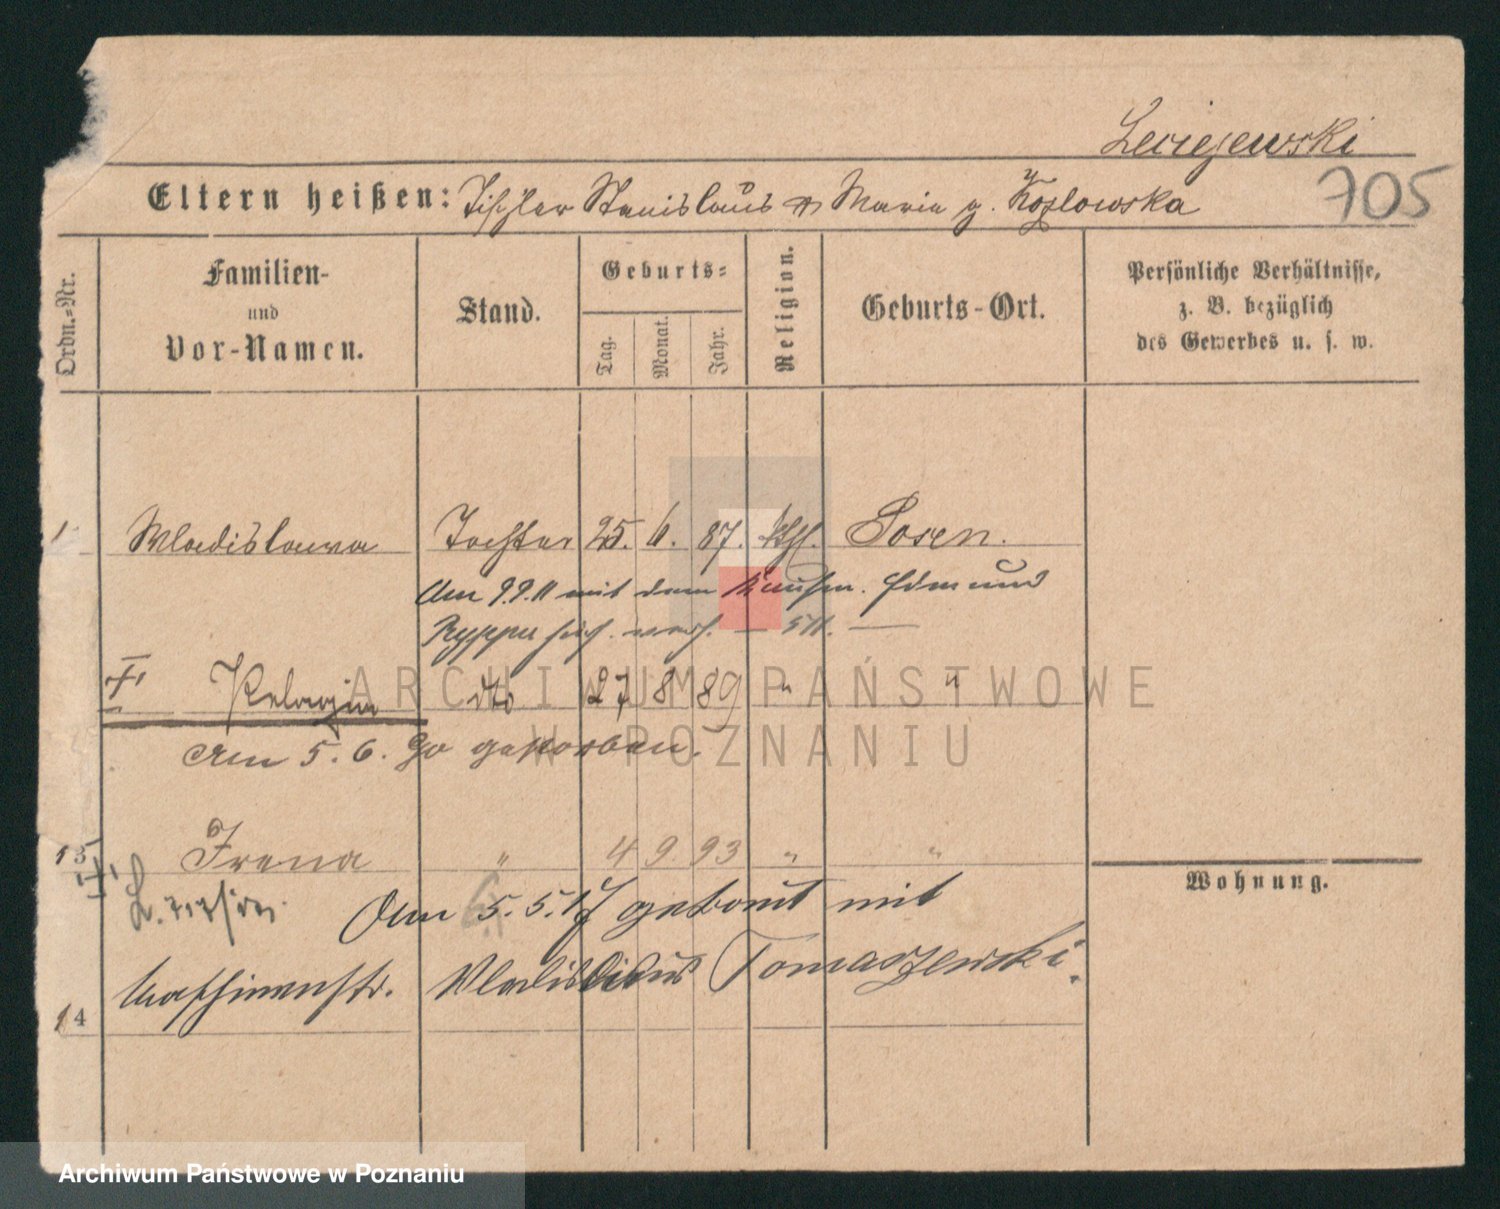 Leciejewski
705
Eltern heißen: Tischler Stanislaus & Maria g. Kozlowska
Ordn.-Nr.
Familien-
und
Vor-Namen.
Stand.
Geburts-
Tag.
Monat.
Jahr.
Religion.
Geburts-Ort.
Persönliche Verhältnisse,
z. B. bezüglich
des Gewerbes u. s. w.
1 Wladislawa Tochter 25. 6. 87. kth. Posen.
Am 9.9.11 mit dem Kaufm. Edmund
Pelagia dto 27 8 89 " "
Am 5. 6. 90 gestorben.
13 Irena " 4 9 93 " "
Wohnung.
Am 5. 5. 17 getraut mit
Maschinenstr. Wladislaus Tomaszewski.
14
ARCHIWUM PAŃSTWOWE
W POZNANIU
Archiwum Państwowe w Poznaniu